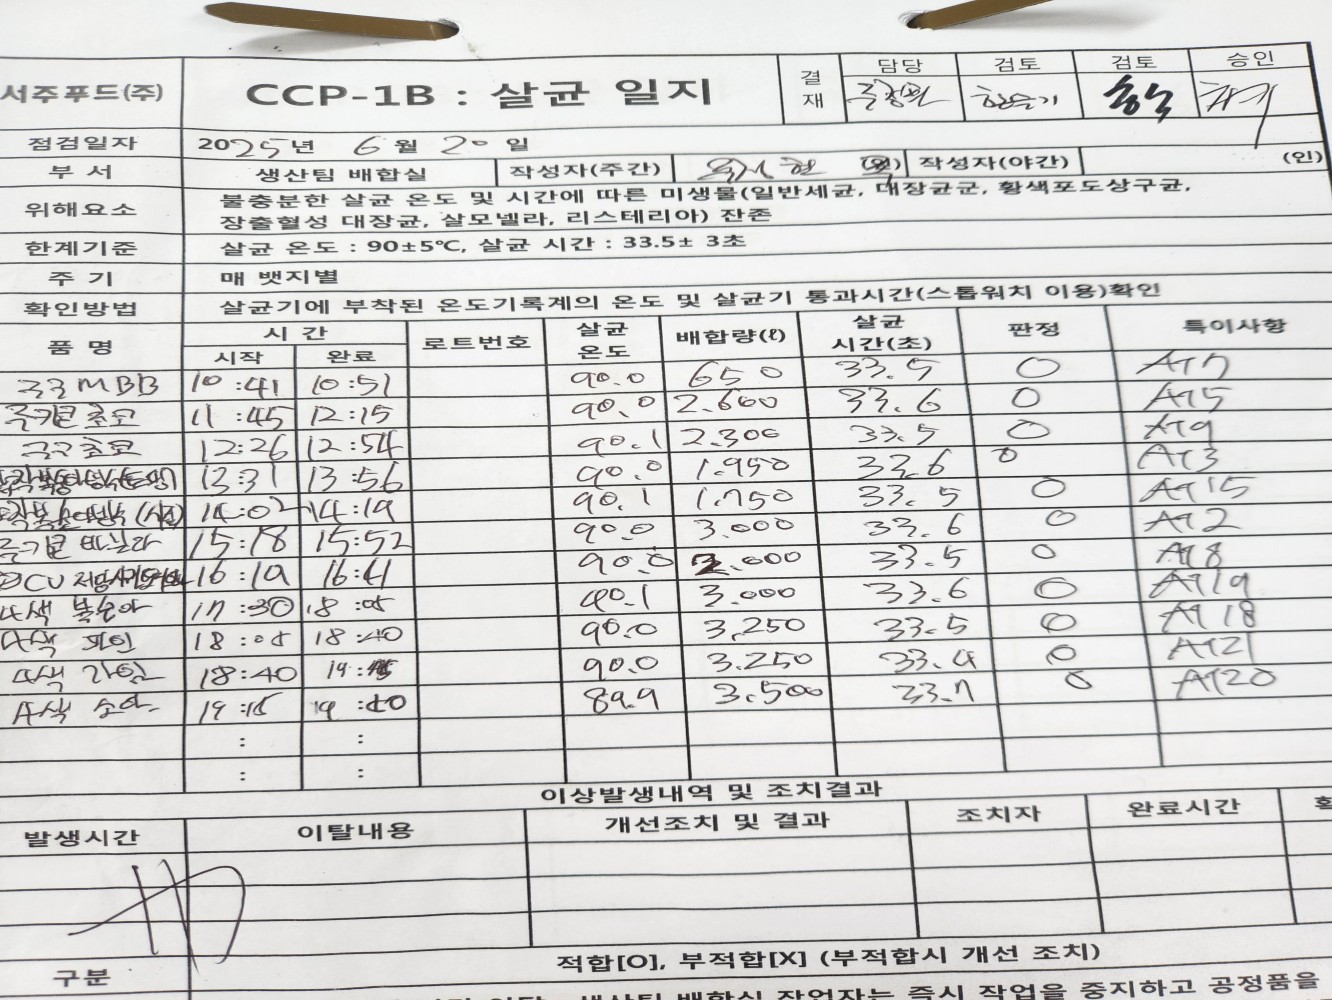 서주푸드(주) CCP-1B : 살균 일지 결재 담당 검토 검토 승인
점검일자 2025년 6월 20일
부 서 생산팀 배합실 작성자(주간) 작성자(야간) (인)
위해요소 불충분한 살균 온도 및 시간에 따른 미생물(일반세균, 대장균군, 황색포도상구균,
장출혈성 대장균, 살모넬라, 리스테리아) 잔존
한계기준 살균 온도 : 90±5℃, 살균 시간 : 33.5± 3초
주 기 매 뱃지별
확인방법 살균기에 부착된 온도기록계의 온도 및 살균기 통과시간(스톱워치 이용)확인
품 명 시 간 로트번호 살균 온도 배합량(ℓ) 살균 시간(초) 판정 특이사항
시작 완료
MBB 10:41 10:51 90.0 650 33.5 O AT7
초코 11:45 12:15 90.0 2.600 33.6 O AT5
초코 12:26 12:54 90.1 2.300 33.5 O AT9
13:31 13:56 90.0 1.950 33.6 O AT3
14:02 14:19 90.1 1.750 33.5 O AT15
바닐라 15:18 15:52 90.0 3.000 33.6 O AT2
16:19 16:41 90.0 2.000 33.5 O AT8
4색 복숭아 17:30 18:05 90.1 3.000 33.6 O AT19
4색 파인 18:05 18:40 90.0 3,250 33.5 O AT18
4색 18:40 90.0 3.250 33.4 O AT21
4색 19:15 19:40 89.9 3.500 33.7 O AT20
: :
: :
이상발생내역 및 조치결과
발생시간 이탈내용 개선조치 및 결과 조치자 완료시간
구분 적합[O], 부적합[X] (부적합시 개선 조치)
생산팀 배합실 작업자는 즉시 작업을 중지하고 공정품을